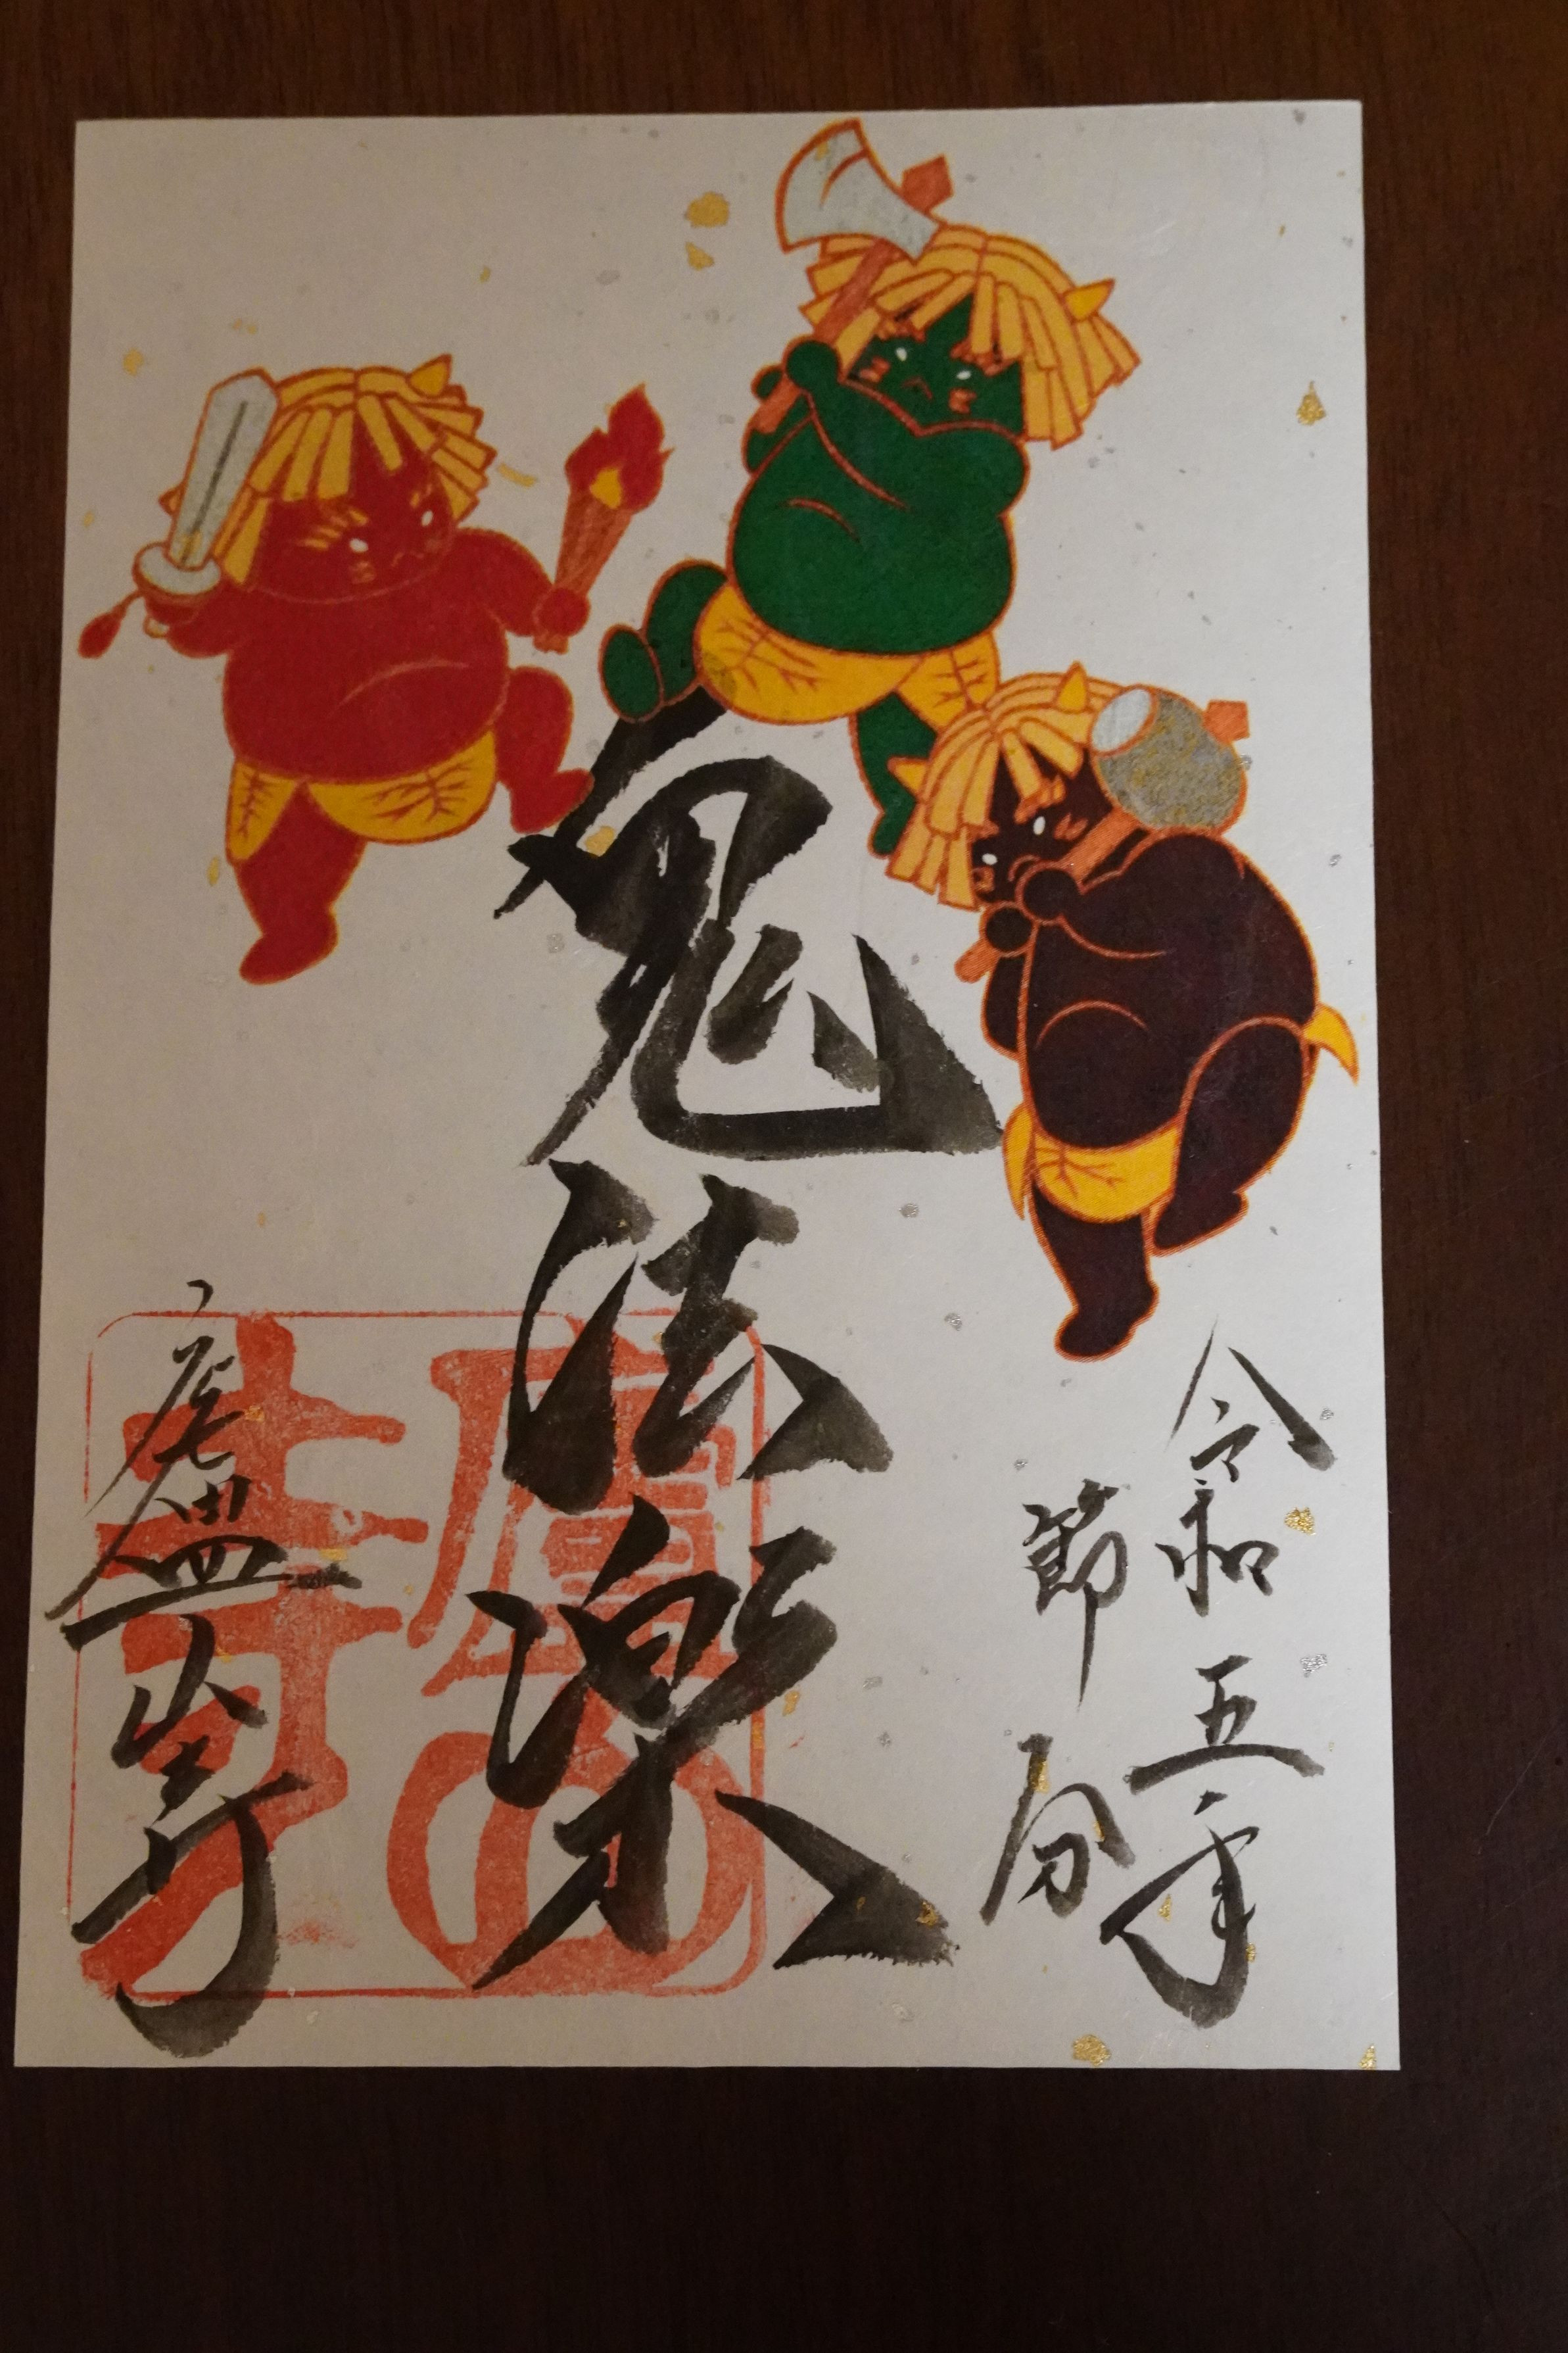 令和五年
節分
鬼法楽
廬山寺
廬山寺